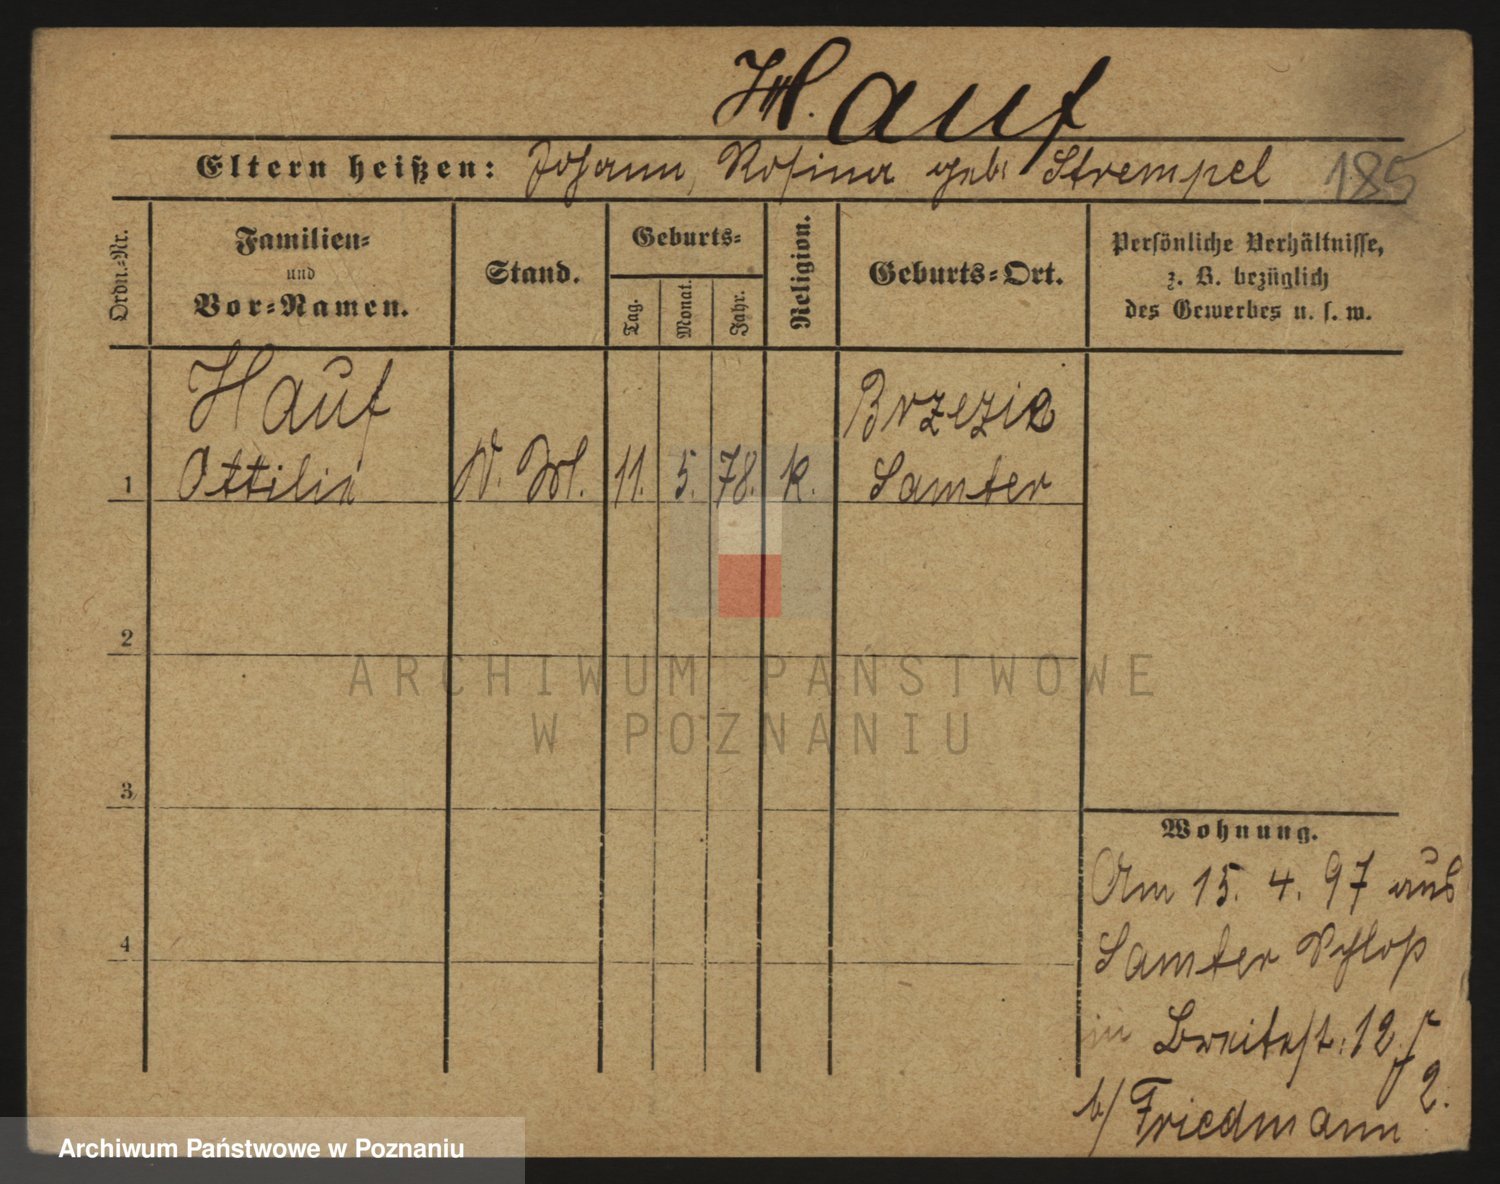 Hauf
Eltern heißen: Johann, Rosina geb. Strempel 185
Ordn.-Nr.
Familien-
und
Vor-Namen.
Stand.
Geburts-
Tag.
Monat.
Jahr.
Religion.
Geburts-Ort.
Persönliche Verhältnisse,
z. B. bezüglich
des Gewerbes u. s. w.
Hauf
Brzezie
1 Ottilie 11. 5. 78. k. Samter
2
3
4
Wohnung.
Am 15. 4. 97 aus
Samter Schloß
in Breitestr. 12
b/ Friedmann 2.
ARCHIWUM PAŃSTWOWE
W POZNANIU
Archiwum Państwowe w Poznaniu